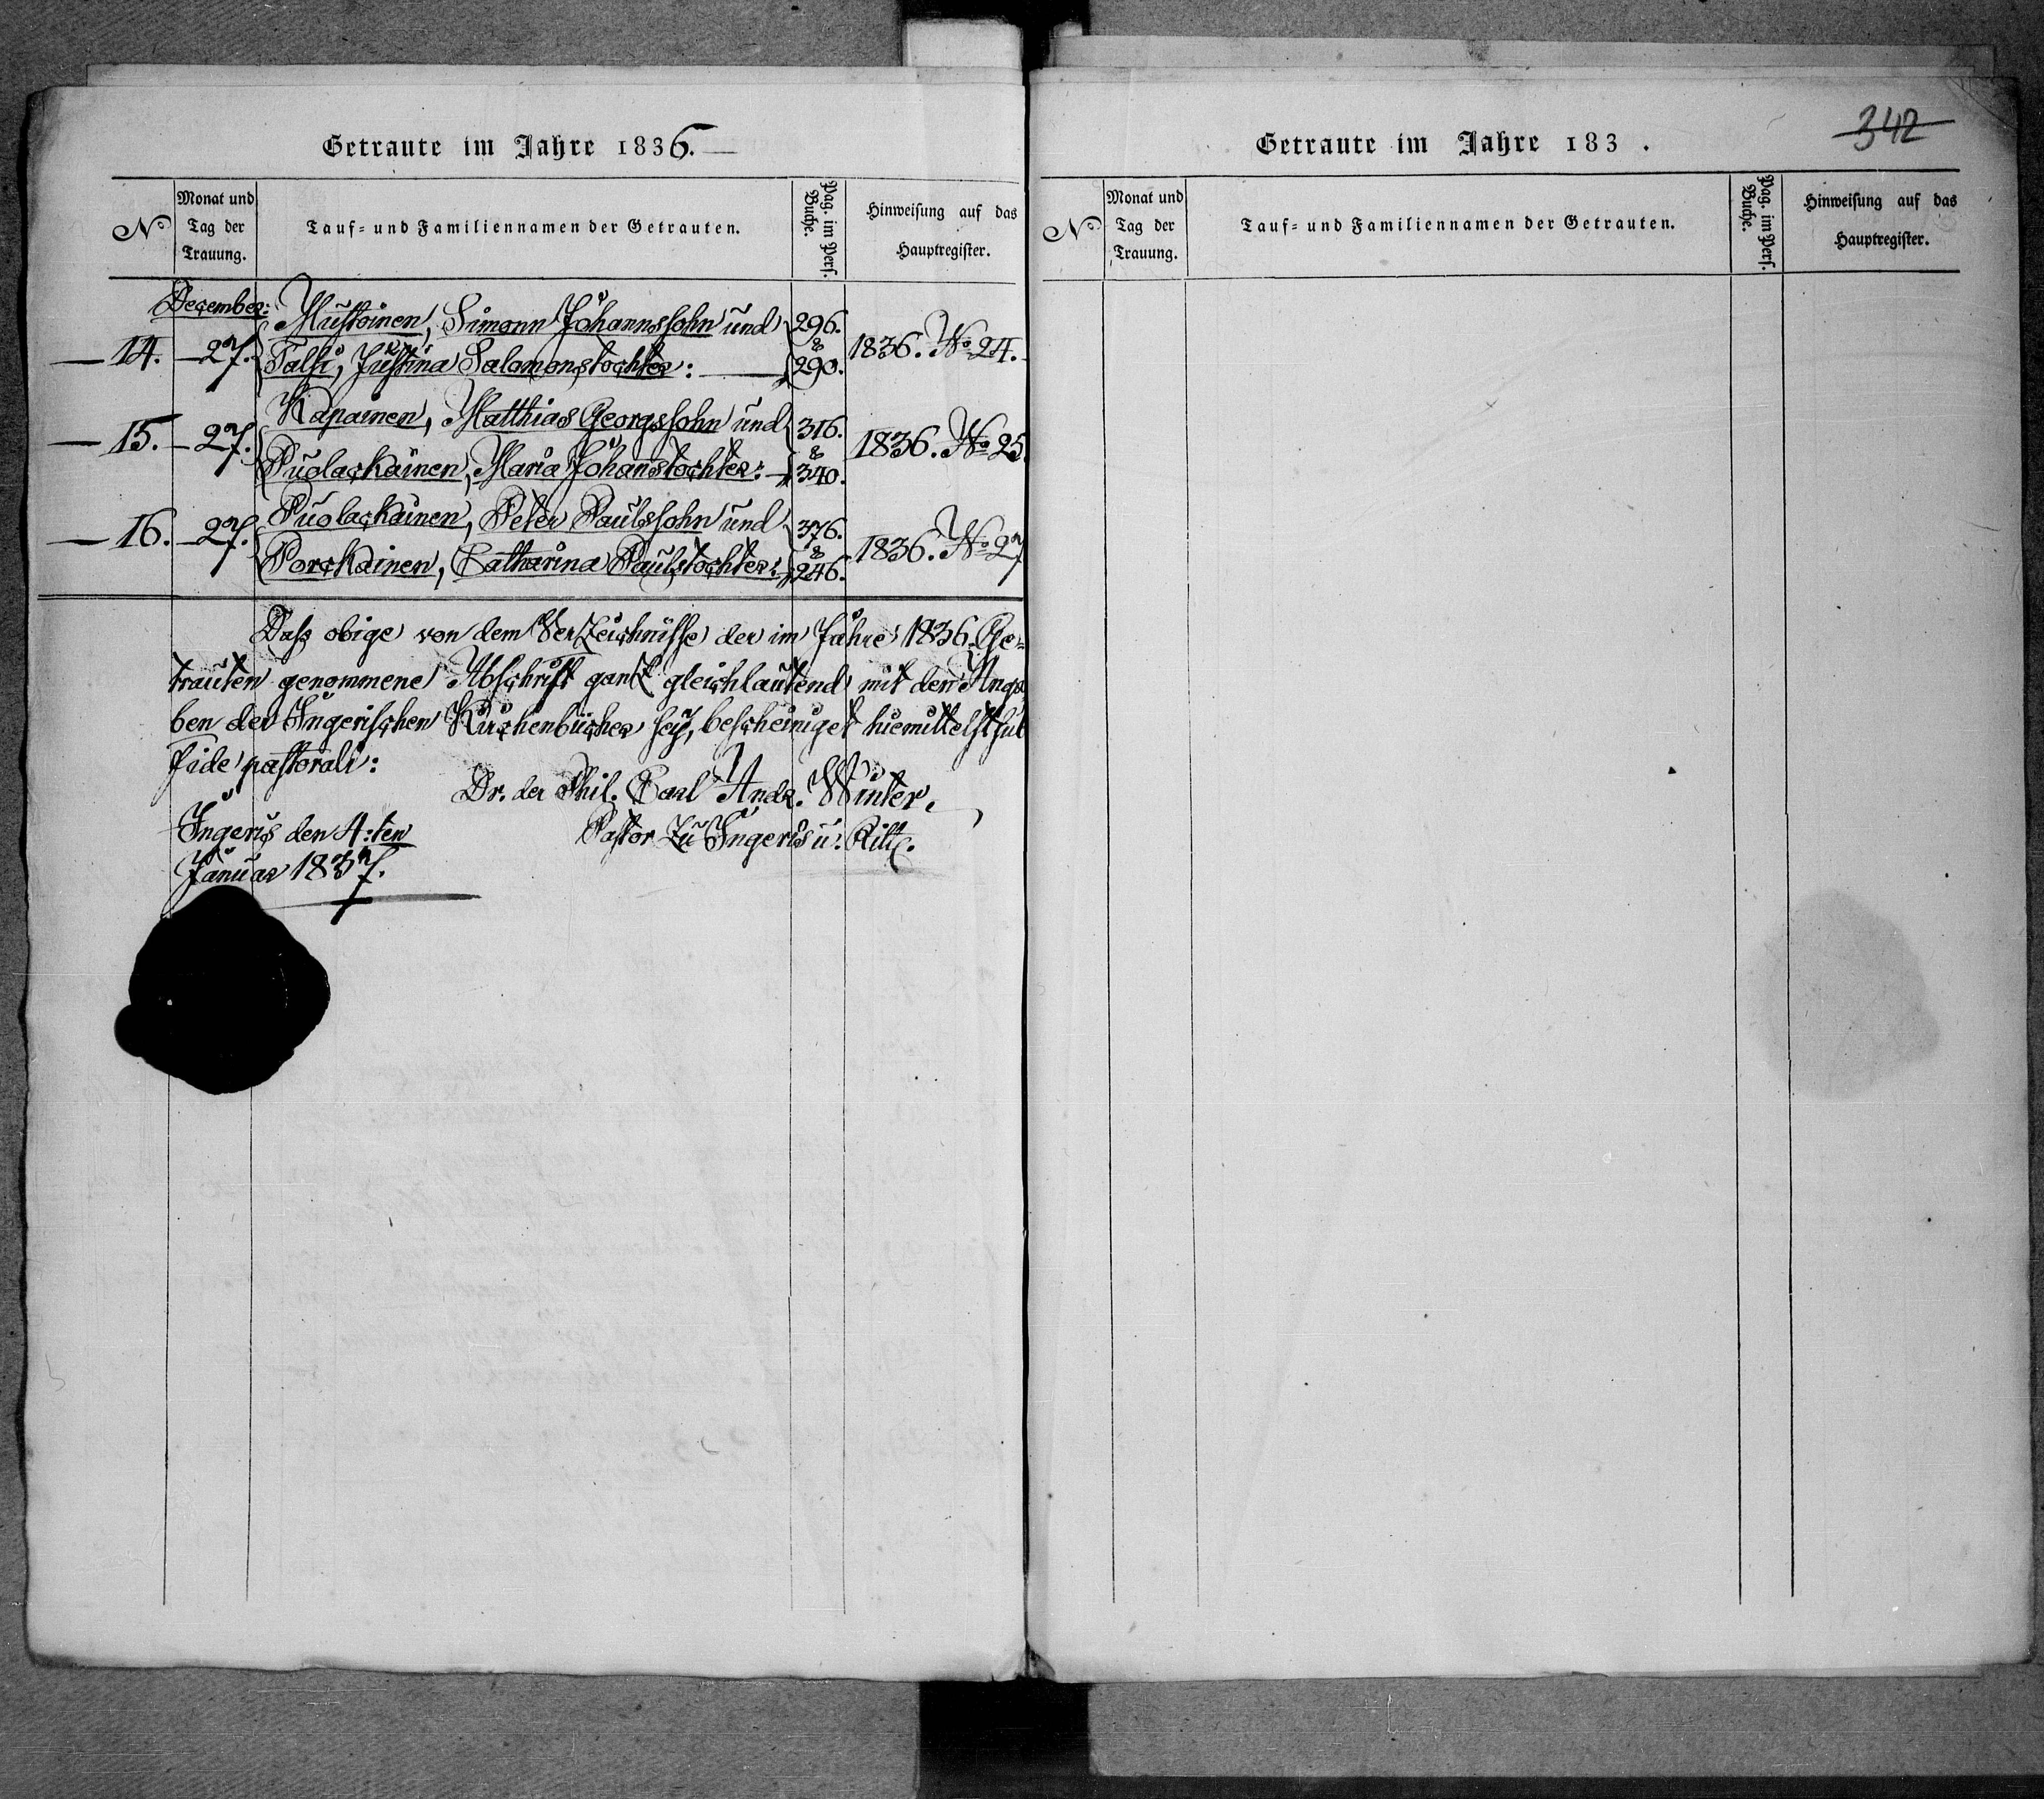 Getraute im Jahre 1836.
No
Monat und
Tag der
Trauung.
Tauf- und Familiennamen der Getrauten.
Pag. im Pers.
Buche.
Hinweisung auf das
Hauptregister.
December:
Mustoinen, Simonn Johannssohn und 296.
14. 27. Talsi, Justina Salomonstochter: & 290. 1836. No 24.
Kapainen, Matthias Georgssohn und 316.
15. 27. Puolackainen, Maria Johanstochter: & 340. 1836. No 25.
Puolackainen, Peter Paulssohn und 376.
16. 27. Porckainen, Catharina Paulstochter: & 246. 1836. No 27
Dass obige von dem Verzeichnisse der im Jahre 1836 Ge-
trauten genommene Abschrift gantz gleichlautend mit den Anga
ben der Ingerischen Kirchenbücher sey, bescheiniget hiemittelst sub
fide pastorali:
Dr. der Phil. Carl Andr. Winter.
Pastor zu Ingeris u.
Ingeris den 4:ten
Januar 1837.
342
Getraute im Jahre 183 .
No
Monat und
Tag der
Trauung.
Tauf- und Familiennamen der Getrauten.
Pag. im Pers.
Buche.
Hinweisung auf das
Hauptregister.